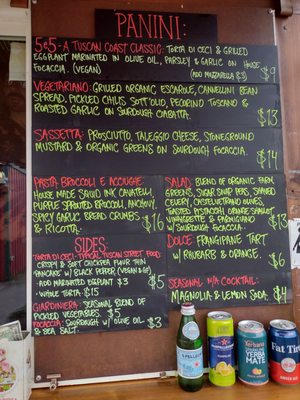 PANINI:
5E5-A TUSCAN COAST CLASSIC: TORTA DI CECI & GRILLED
EGGPLANT MARINATED IN OLIVE OIL, PARSLEY & GARLIC ON HOUSE
FOCACCIA. (VEGAN) (ADD MOZZARELLA $3) $9
VEGETARIANO: GRILLED ORGANIC ESCAROLE, CANNELLINI BEAN
SPREAD, PICKLED CHILIS SOTT'OLIO, PECORINO TOSCANO &
ROASTED GARLIC ON SOURDOUGH CIABATTA. $13
SASSETTA: PROSCIUTTO, TALEGGIO CHEESE, STONEGROUND
MUSTARD & ORGANIC GREENS ON SOURDOUGH FOCACCIA. $14
PASTA BROCCOLI E ACCIUGHE:
HOUSE MADE SQUID INK CAVATELLI,
PURPLE SPROUTED BROCCOLI, ANCHOVY,
SPICY GARLIC BREAD CRUMBS
& RICOTTA. $16
SALAD: BLEND OF ORGANIC FARM
GREENS, SUGAR SNAP PEAS, SHAVED
CELERY, CASTELVETRANO OLIVES,
TOASTED PISTACHIOS, ORANGE SHALLOT
VINAIGRETTE & PARMIGIANO
W/ SOURDOUGH FOCACCIA. $13
SIDES:
TORTA DI CECI: TYPICAL TUSCAN STREET FOOD.
CRISPY & SOFT CHICKPEA FLOUR THIN
PANCAKE W/ BLACK PEPPER (VEGAN & GF) $5
- ADD MARINATED EGGPLANT $3
- WHOLE TORTA: $15
GIARDINIERA: SEASONAL BLEND OF
PICKLED VEGETABLES. $5
FOCACCIA: SOURDOUGH W/ OLIVE OIL
& SEA SALT. $3
DOLCE: FRANGIPANE TART
W/ RHUBARB & ORANGE. $6
SEASONAL N/A COCKTAIL:
MAGNOLIA & LEMON SODA. $4
S.PELLEGRINO
YERBA
MATE
Fat Tire